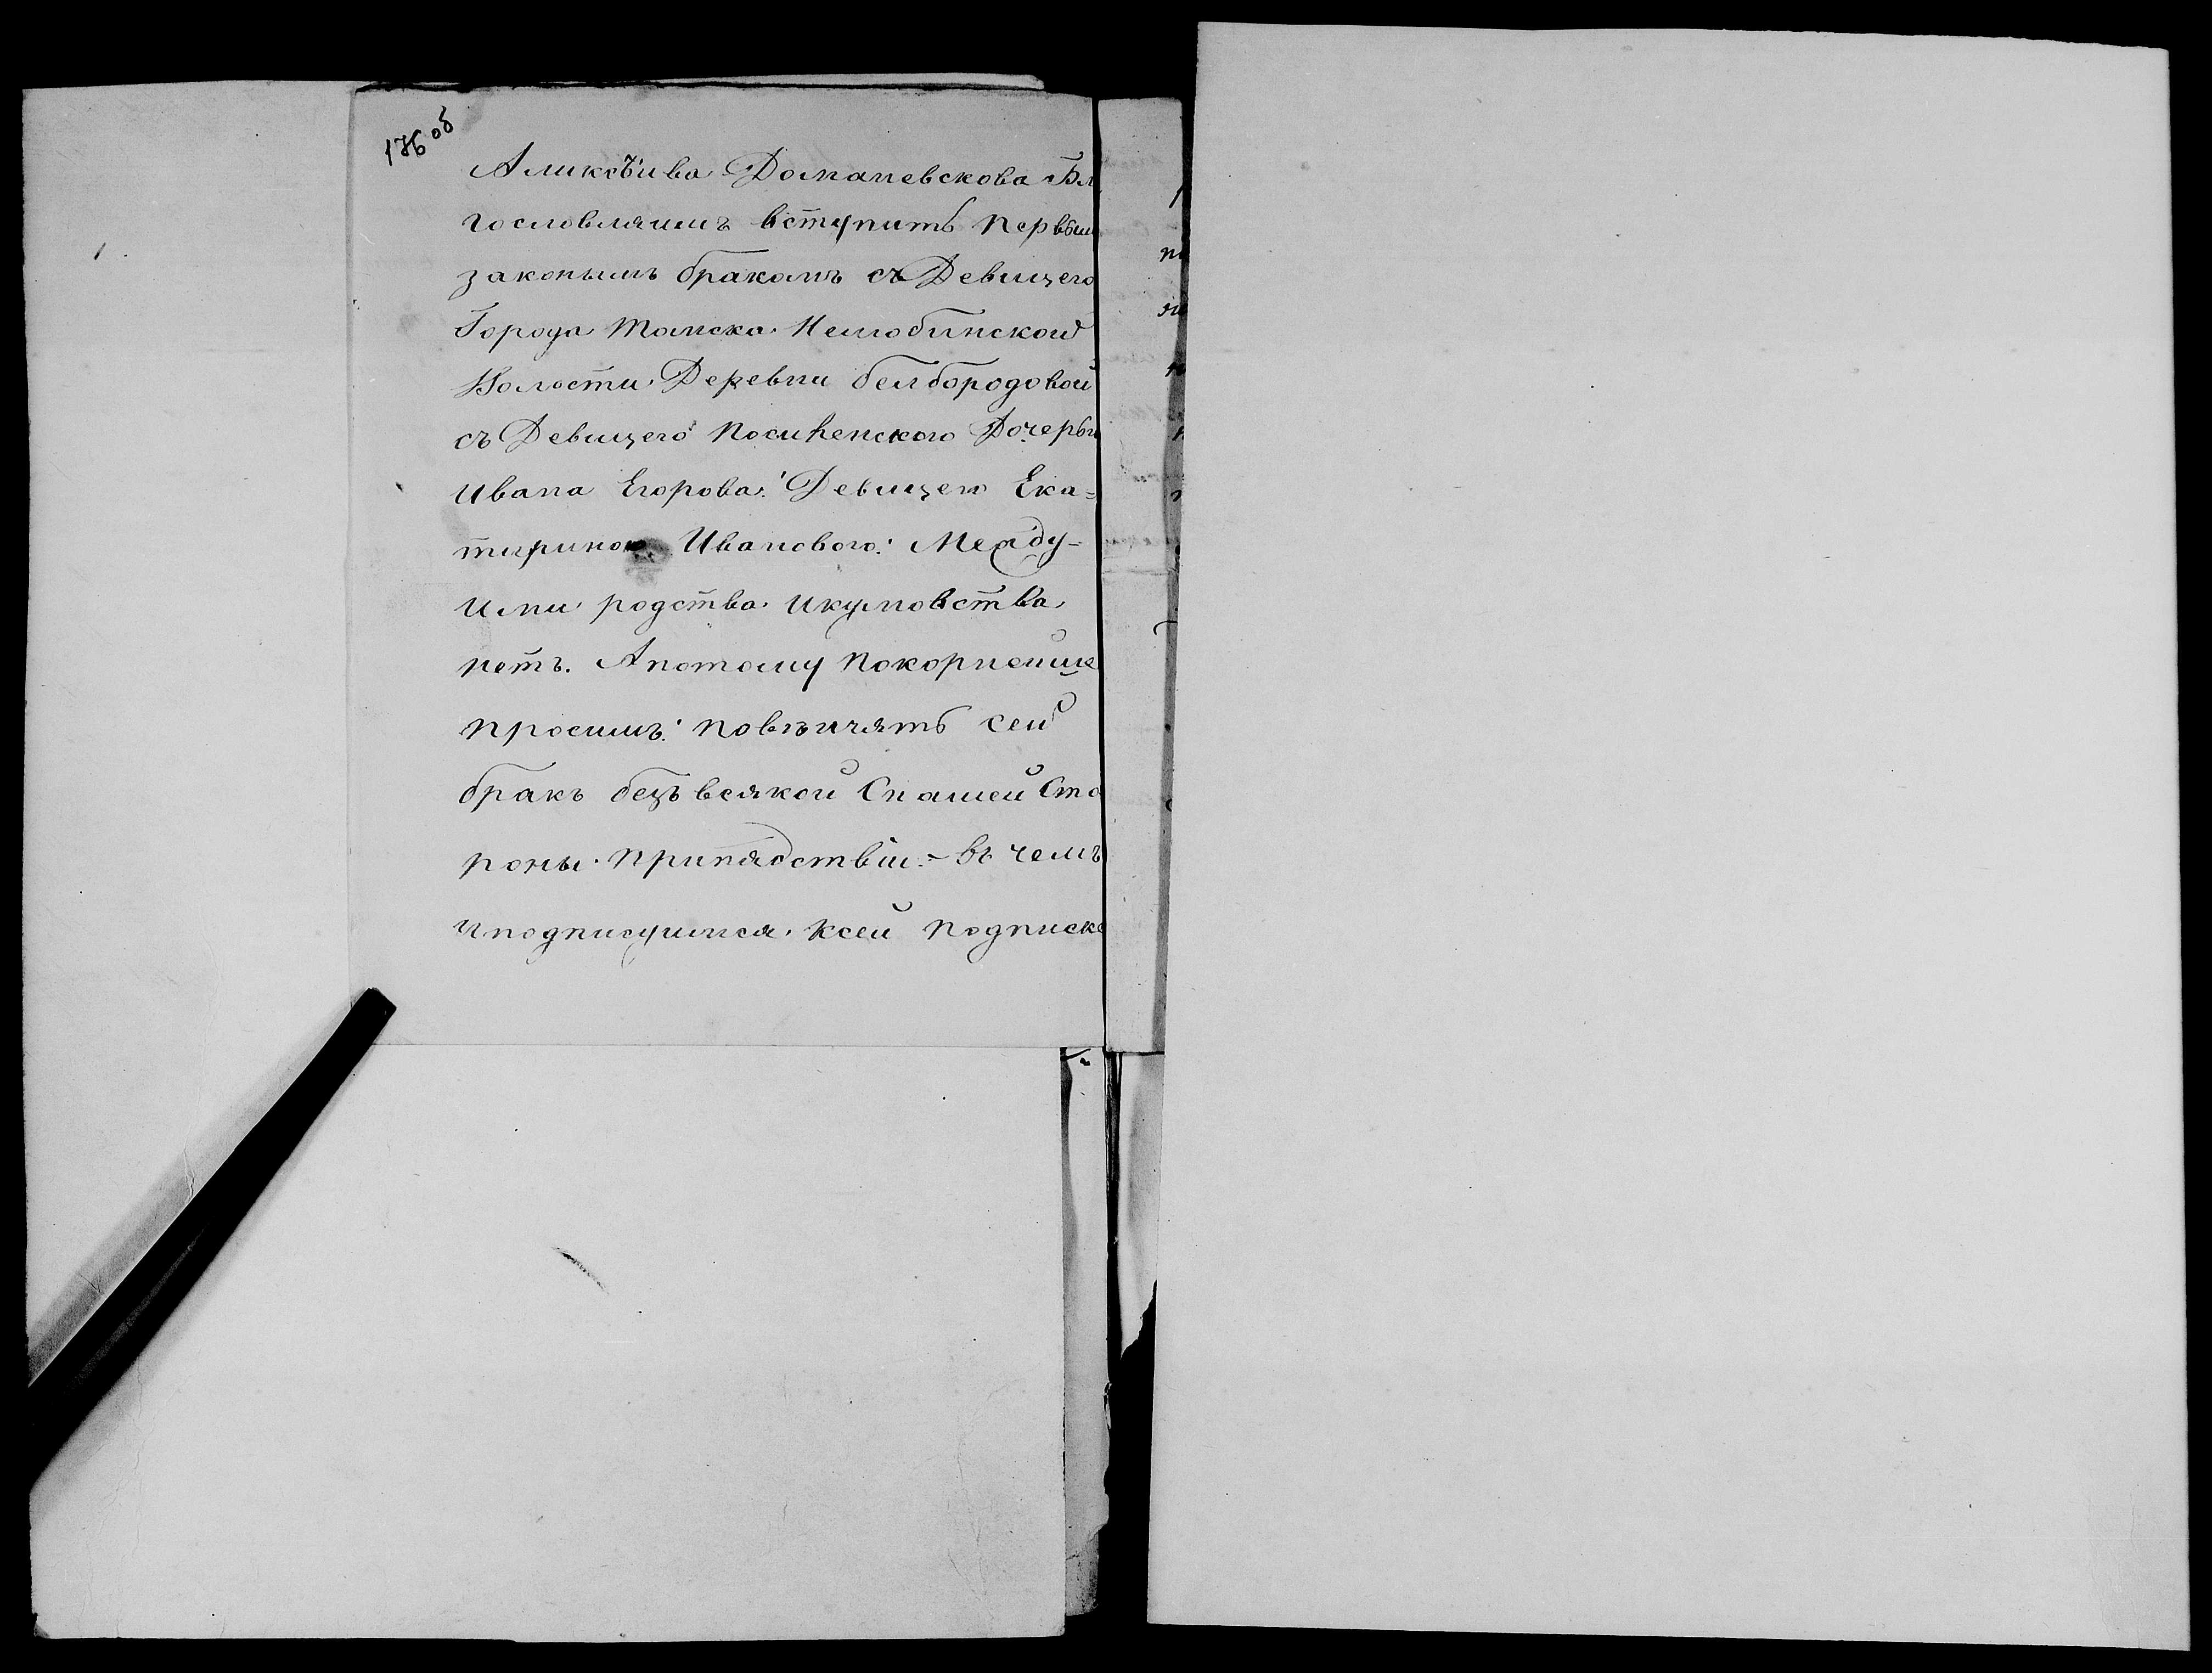 176 об
Аликсѣива Доманевскова Бл
гословляимъ вступить первым
законымъ бракомъ съ Девицего
Города Томска Нелюбинской
Волости Деревни белбородовой
съ Девицего Посиhенского Дочерьи
Ивана Егорова: Девицею Ека-
тириною Иванового: Между-
ими родства икумовства
нетъ. Апотому покорнейше
просимъ: повѣнчять сей
бракъ безъ всякой Снашей Сто
роны припядствіи.- въ чемъ
иподписуимся ксей подписке